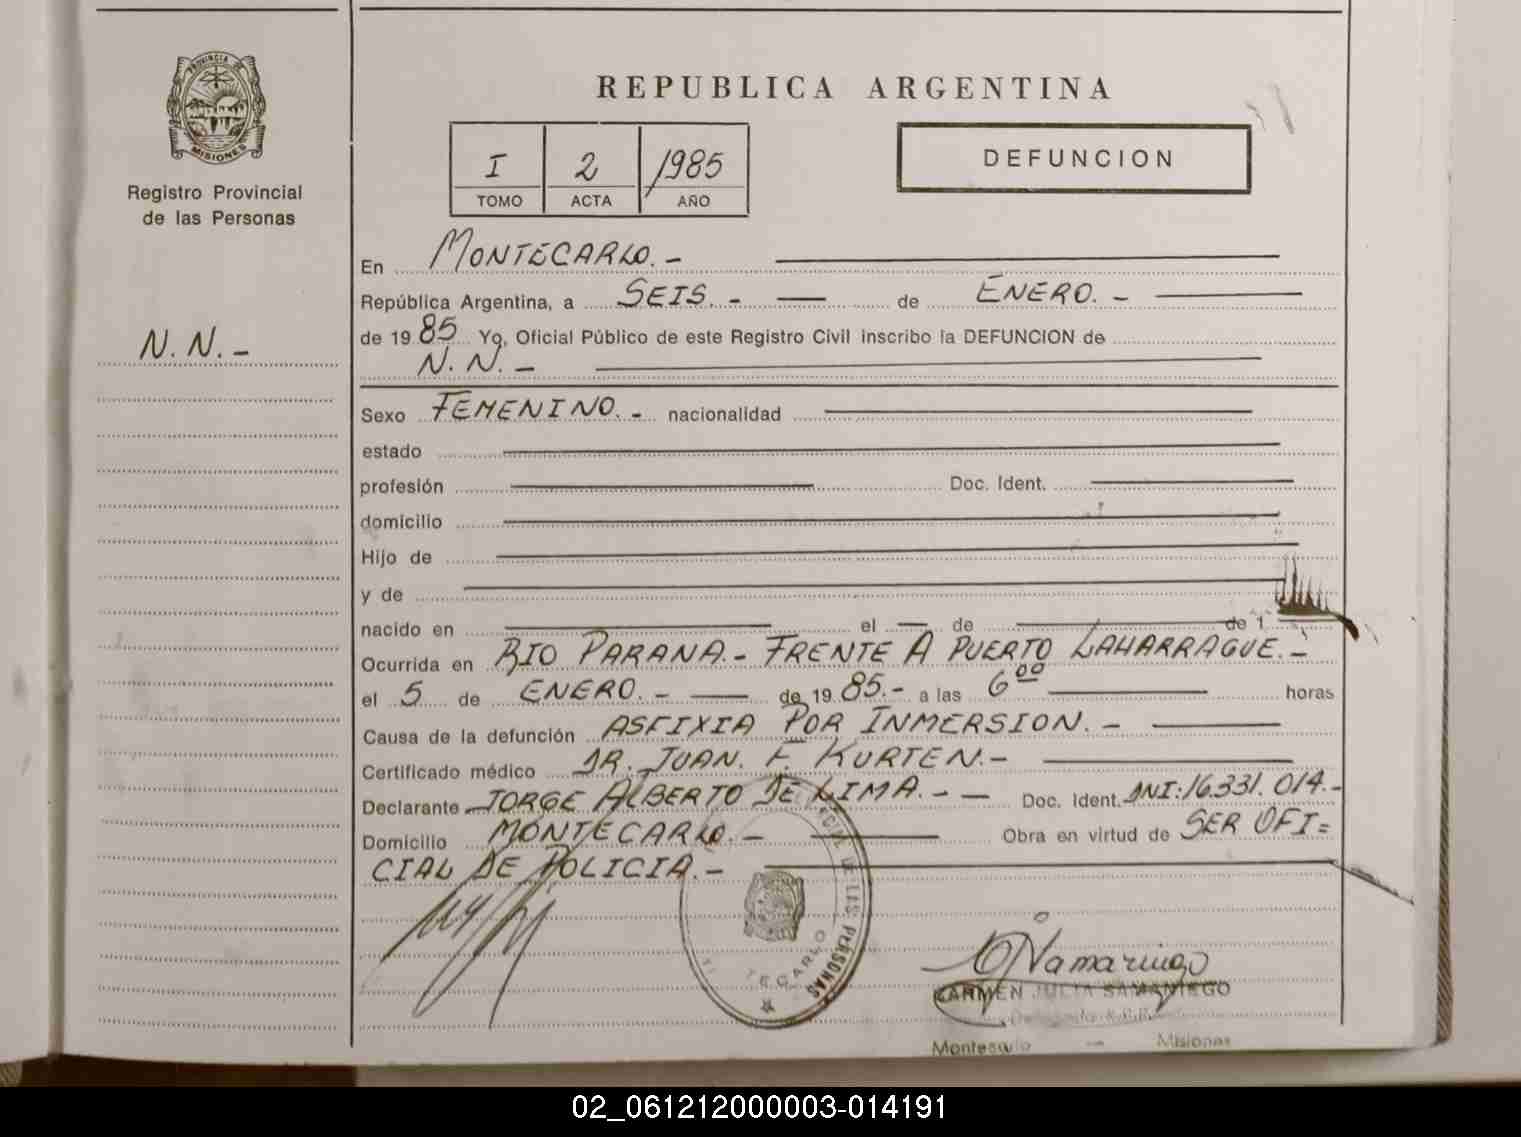 PROVINCIA DE
MISIONES
Registro Provincial
de las Personas
N. N. -
REPUBLICA ARGENTINA
I 2 1985
TOMO ACTA AÑO
DEFUNCION
En MONTECARLO. -
República Argentina, a SEIS. - de ENERO. -
de 19 85 Yo, Oficial Público de este Registro Civil inscribo la DEFUNCION de
N. N. -
Sexo FEMENINO. - nacionalidad
estado
profesión Doc. Ident.
domicilio
Hijo de
y de
nacido en el de de 1
Ocurrida en RIO PARANA. - FRENTE A PUERTO LAHARRAGUE. -
el 5 de ENERO. - de 19 85. - a las 6 00 horas
Causa de la defunción ASFIXIA POR INMERSION. -
Certificado médico DR. JUAN. F. KURTEN. -
Declarante JORGE ALBERTO DE LIMA. - - Doc. Ident. DNI: 16.331.014. -
Domicilio MONTECARLO. - Obra en virtud de SER OFI=
CIAL DE POLICIA. -
DE LAS PERSONAS
CARMEN JULIA SAMANIEGO
Montecarlo - Misiones
02_061212000003-014191